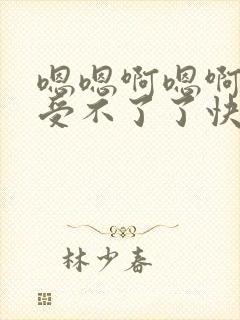 嗯嗯啊嗯啊
受不了了快
林少春